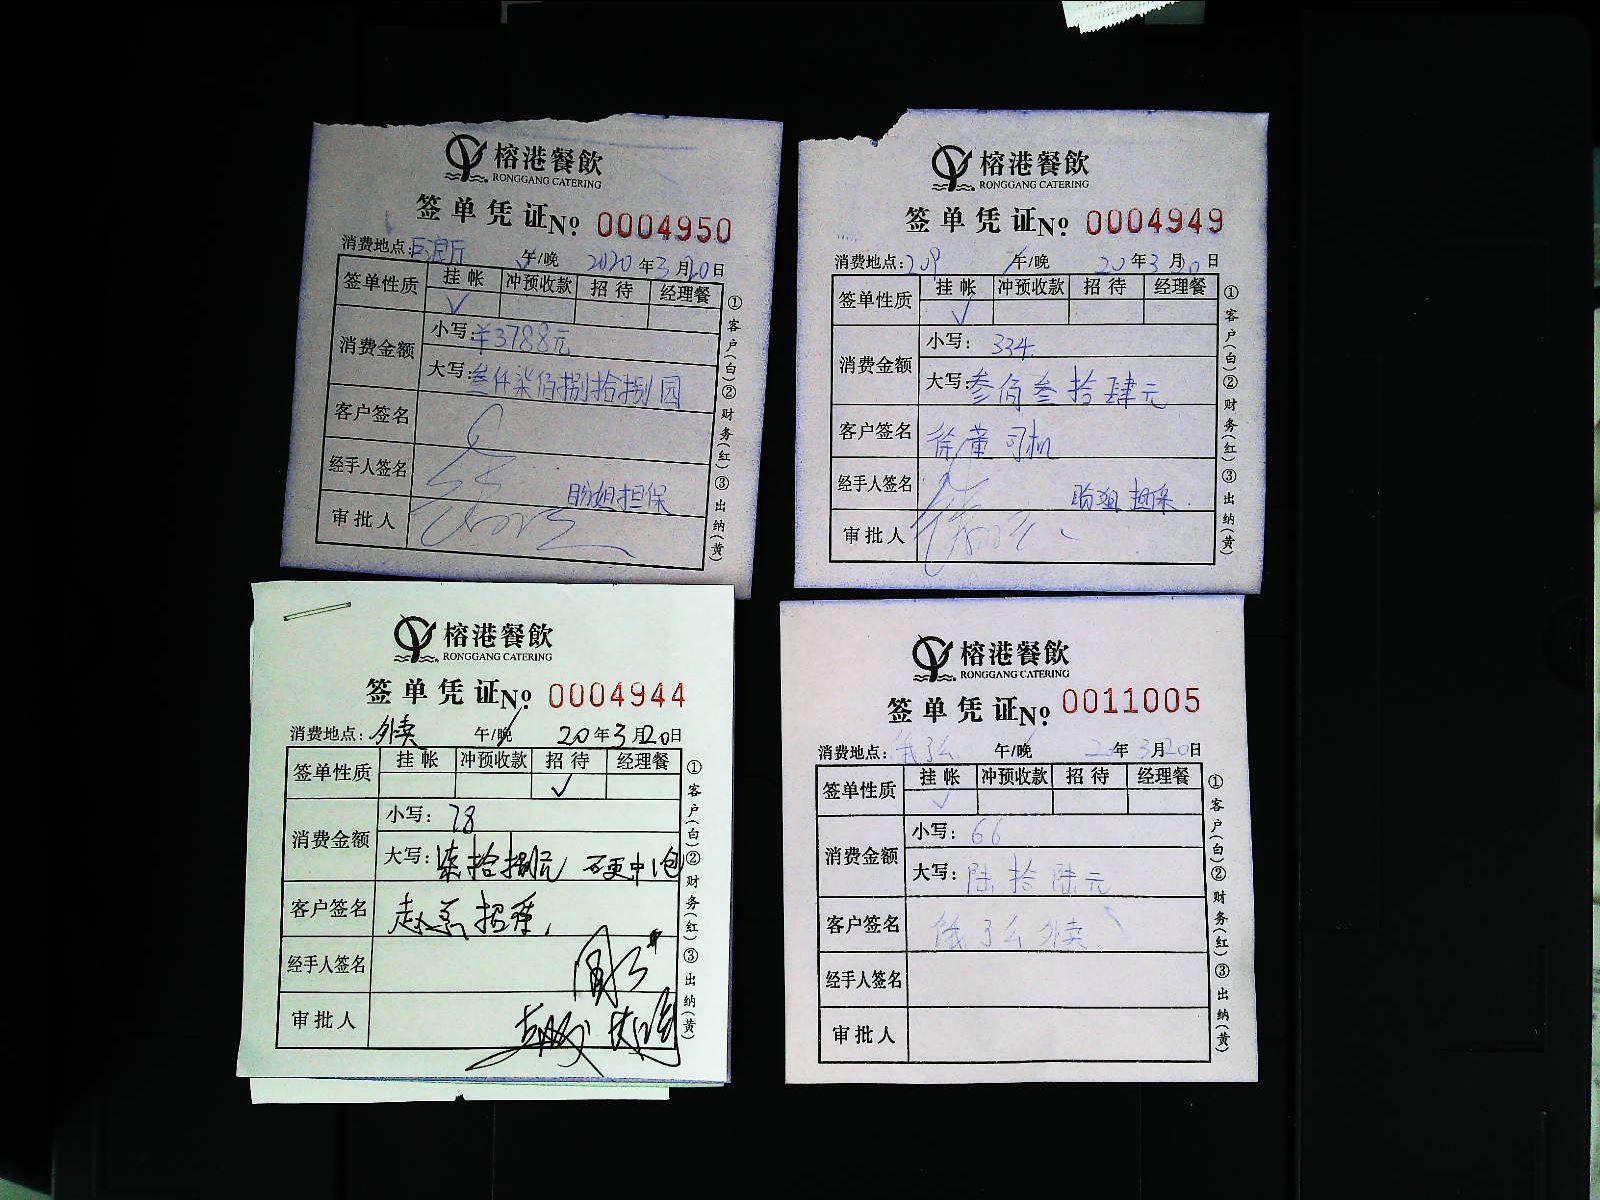 榕港餐飲
RONGGANG CATERING
签单凭证 No 0004950
消费地点: 巨浪厅 午/晚 2020年3月20日
签单性质 挂帐 冲预收款 招待 经理餐
✓
消费金额 小写: ¥3788元
大写: 叁仟柒佰捌拾捌园
客户签名
经手人签名 盼姐担保
审批人
①客户(白)②财务(红)③出纳(黄)
榕港餐飲
RONGGANG CATERING
签单凭证 No 0004949
消费地点: 209 午/晚 20年3月20日
签单性质 挂帐 冲预收款 招待 经理餐
✓
消费金额 小写: 334
大写: 叁佰叁拾肆元
客户签名 徐董司机
经手人签名 盼姐担保.
审批人
①客户(白)②财务(红)③出纳(黄)
榕港餐飲
RONGGANG CATERING
签单凭证 No 0004944
消费地点: 外卖 午/晚 20年3月20日
签单性质 挂帐 冲预收款 招待 经理餐
✓
消费金额 小写: 78
大写: 柒拾捌元 硬中1包
客户签名 赵总招待
经手人签名
审批人
①客户(白)②财务(红)③出纳(黄)
榕港餐飲
RONGGANG CATERING
签单凭证 No 0011005
消费地点: 饿了么 午/晚 20年3月20日
签单性质 挂帐 冲预收款 招待 经理餐
✓
消费金额 小写: 66
大写: 陆拾陆元
客户签名 饿了么外卖
经手人签名
审批人
①客户(白)②财务(红)③出纳(黄)